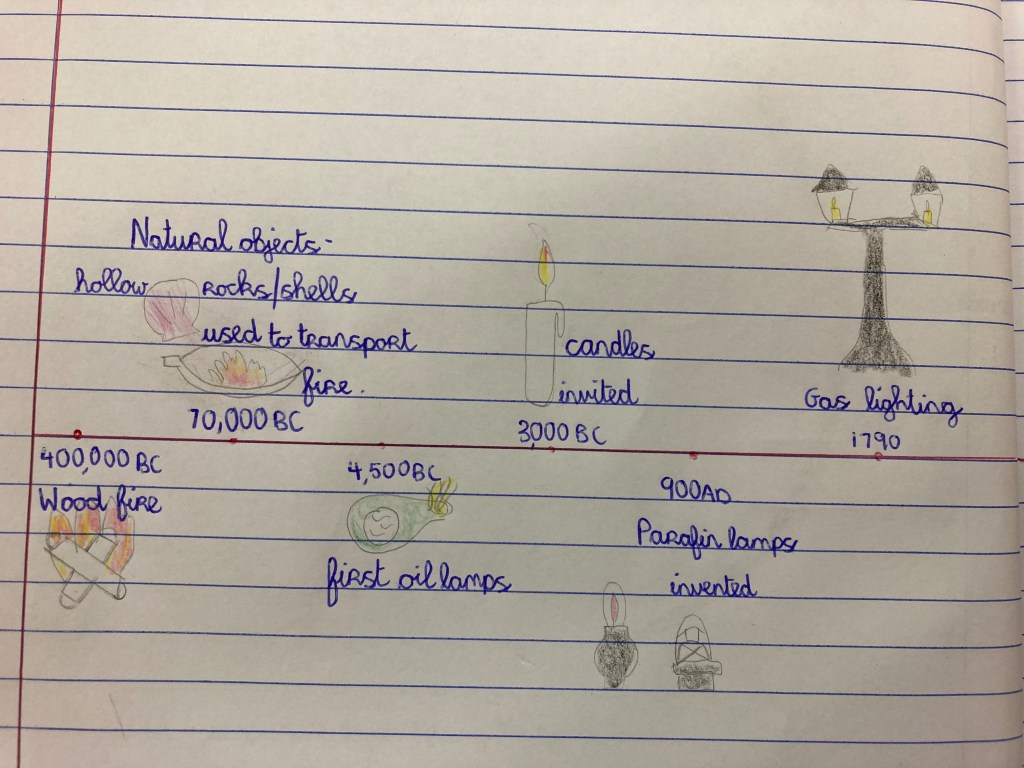 Natural objects-
hollow rocks/shells
used to transport
fire.
70,000 BC
candles
invited
3,000 BC
Gas lighting
1790
400,000 BC
Wood fire
4,500 BC
first oil lamps
900AD
Parafin lamps
invented